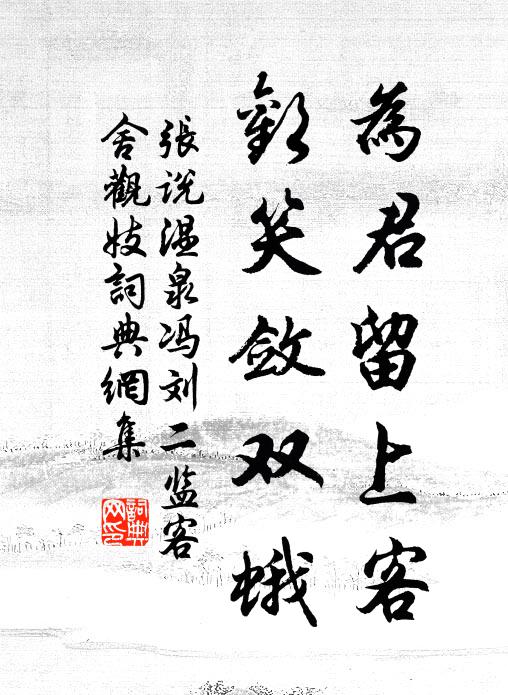 為君留上客
歡笑斂双蛾
張说温泉冯刘二监客
舍觀妓詞典網集
詞典网印